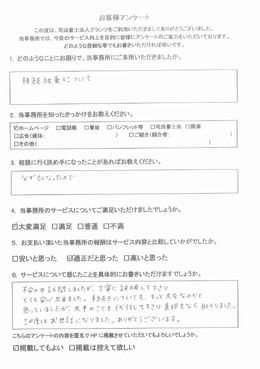 お客様アンケート
この度は、司法書士法人グランツをご利用いただきましてありがとうございました。
当事務所では、今後のサービス向上を目的に皆様にアンケートのご協力をいただいております。
どのような些細な事でもお書きいただければ幸いです。
1. どのようなことにお困りで、当事務所にご来所いただきましたか。
相続放棄について
2. 当事務所を知ったきっかけをお教えください。
☑ホームページ □電話帳 □看板 □パンフレット等 □司法書士会 □講演
□広告(媒体: ) □ご紹介(紹介者: )
□その他( )
3. 相談に行く決め手になったことがあればお教えください。
4. 当事務所のサービスについてご満足いただけましたでしょうか。
☑大変満足 □満足 □普通 □不満
5. お支払い頂いた当事務所の報酬はサービス内容と比較していかがでしたか。
□安いと思った ☑適正だと思った □高いと思った
6. サービスについて感じたことを具体的にお書きいただけますでしょうか。
丁寧に説明して下さり
とても安心出来ました。手続きについても、もっと大変なのかと
思っていましたが、大半のことを代行して下さり負担もなく助かりました。
この度はお世話になりました。ありがとうございます。
こちらのアンケートの内容を匿名でHPに掲載させていただいてもよろしいでしょうか。
☑掲載してもよい □掲載は控えて欲しい